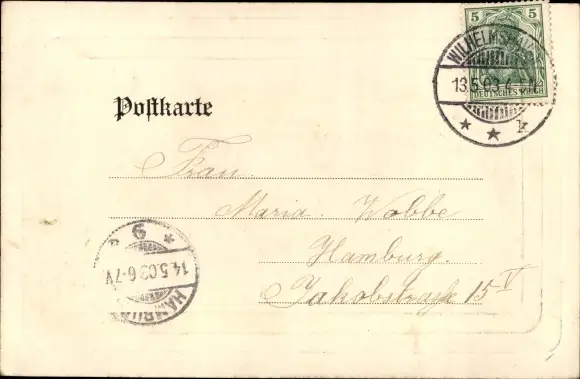 5 5
DEUTSCHES REICH
13.5.03.
Postkarte
Frau.
Maria. Wobbe
Hamburg.
Jakobstraße 15 V
6
14.5.03 6-7V